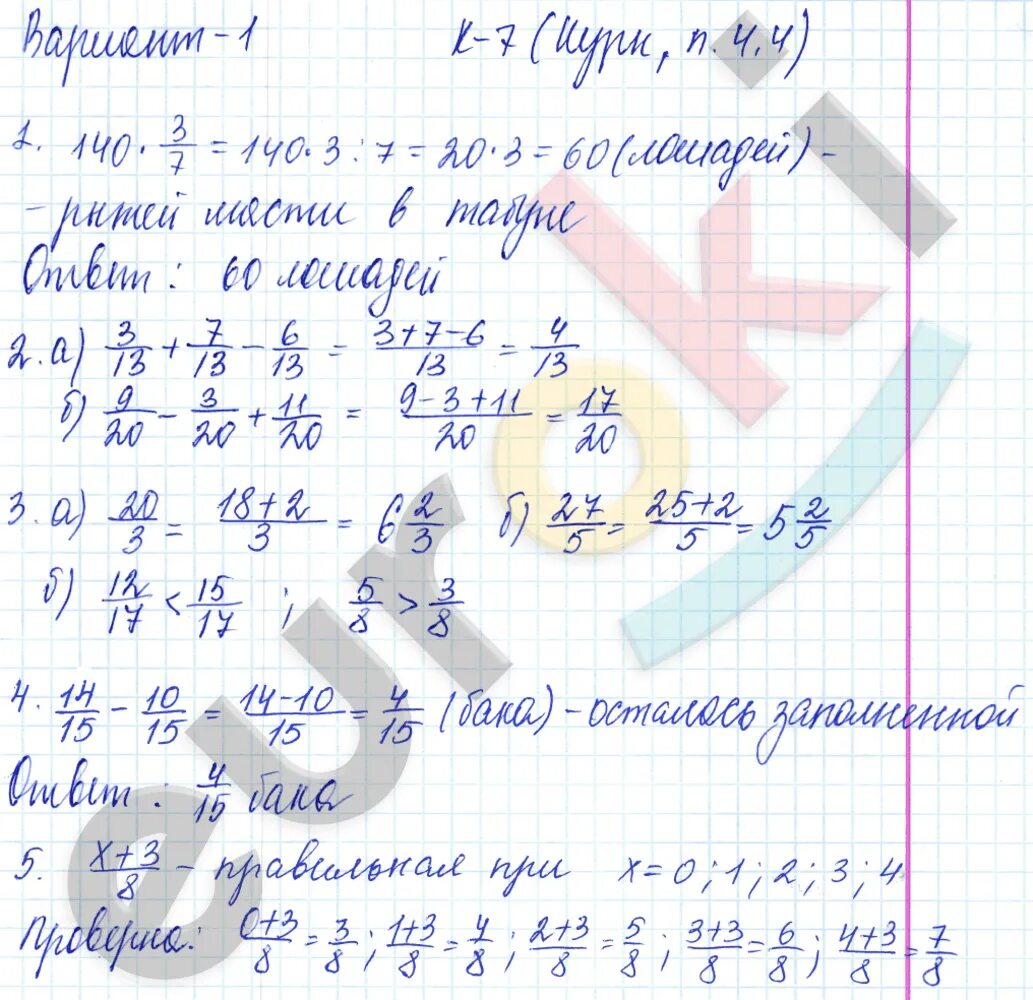 Вариант-1 К-7 (Нурк, п. 4.4)
1. 140 · 3/7 = 140·3 : 7 = 20·3 = 60 (лошадей) -
- рыжей масти в табуне
Ответ: 60 лошадей
2. а) 3/13 + 7/13 - 6/13 = (3+7-6)/13 = 4/13
б) 9/20 - 3/20 + 11/20 = (9-3+11)/20 = 17/20
3. а) 20/3 = (18+2)/3 = 6 2/3 б) 27/5 = (25+2)/5 = 5 2/5
б) 12/17 < 15/17 ; 5/8 > 3/8
4. 14/15 - 10/15 = (14-10)/15 = 4/15 (бака) - осталось заполненной
Ответ: 4/15 бака
5. (x+3)/8 - правильная при x = 0; 1; 2; 3; 4
Проверка: (0+3)/8 = 3/8; (1+3)/8 = 4/8; (2+3)/8 = 5/8; (3+3)/8 = 6/8; (4+3)/8 = 7/8
euroki